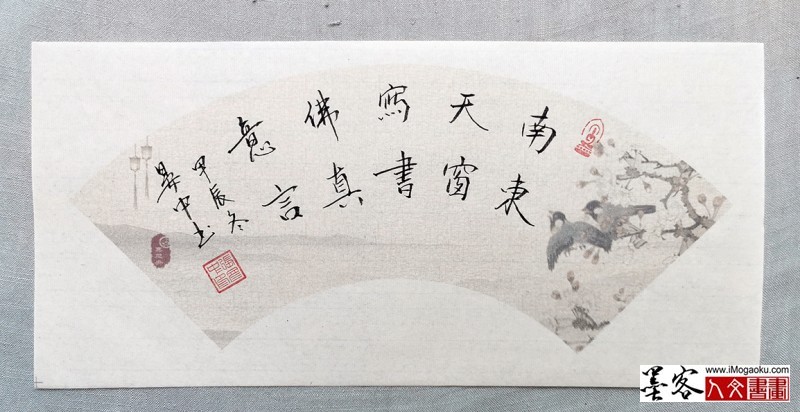 南東
天窗
寫書
佛真
意言
甲辰冬
中书
www.iMogaoku.com
墨客
人文書畫